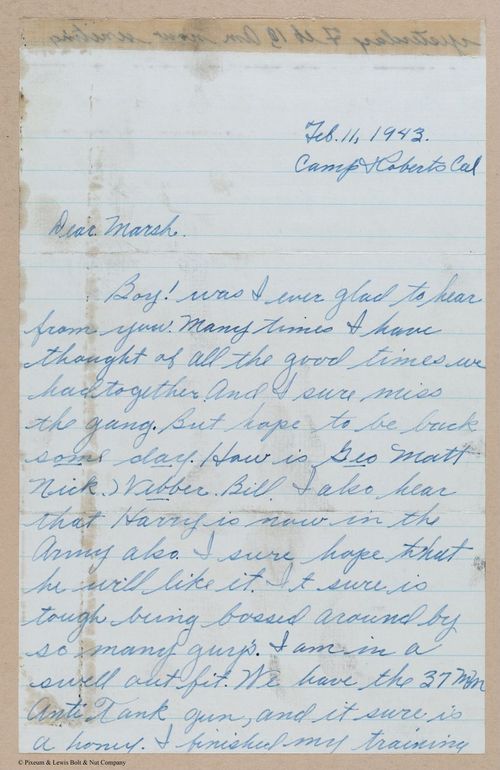 Feb. 11, 1943.
Camp Roberts Cal
Dear Marsh.
Boy! was I ever glad to hear
from you. Many times I have
thought of all the good times we
had together. And I sure miss
the gang. But hope to be back
some day. How is Geo Matt
Nick. Webber. Bill. I also hear
that Harry is now in the
Army also. I sure hope that
he will like it. It sure is
tough being bossed around by
so many guys. I am in a
swell out fit. We have the 37 MM
Anti Tank gun, and it sure is
a honey. I finished my training
© Pixeum & Lewis Bolt & Nut Company